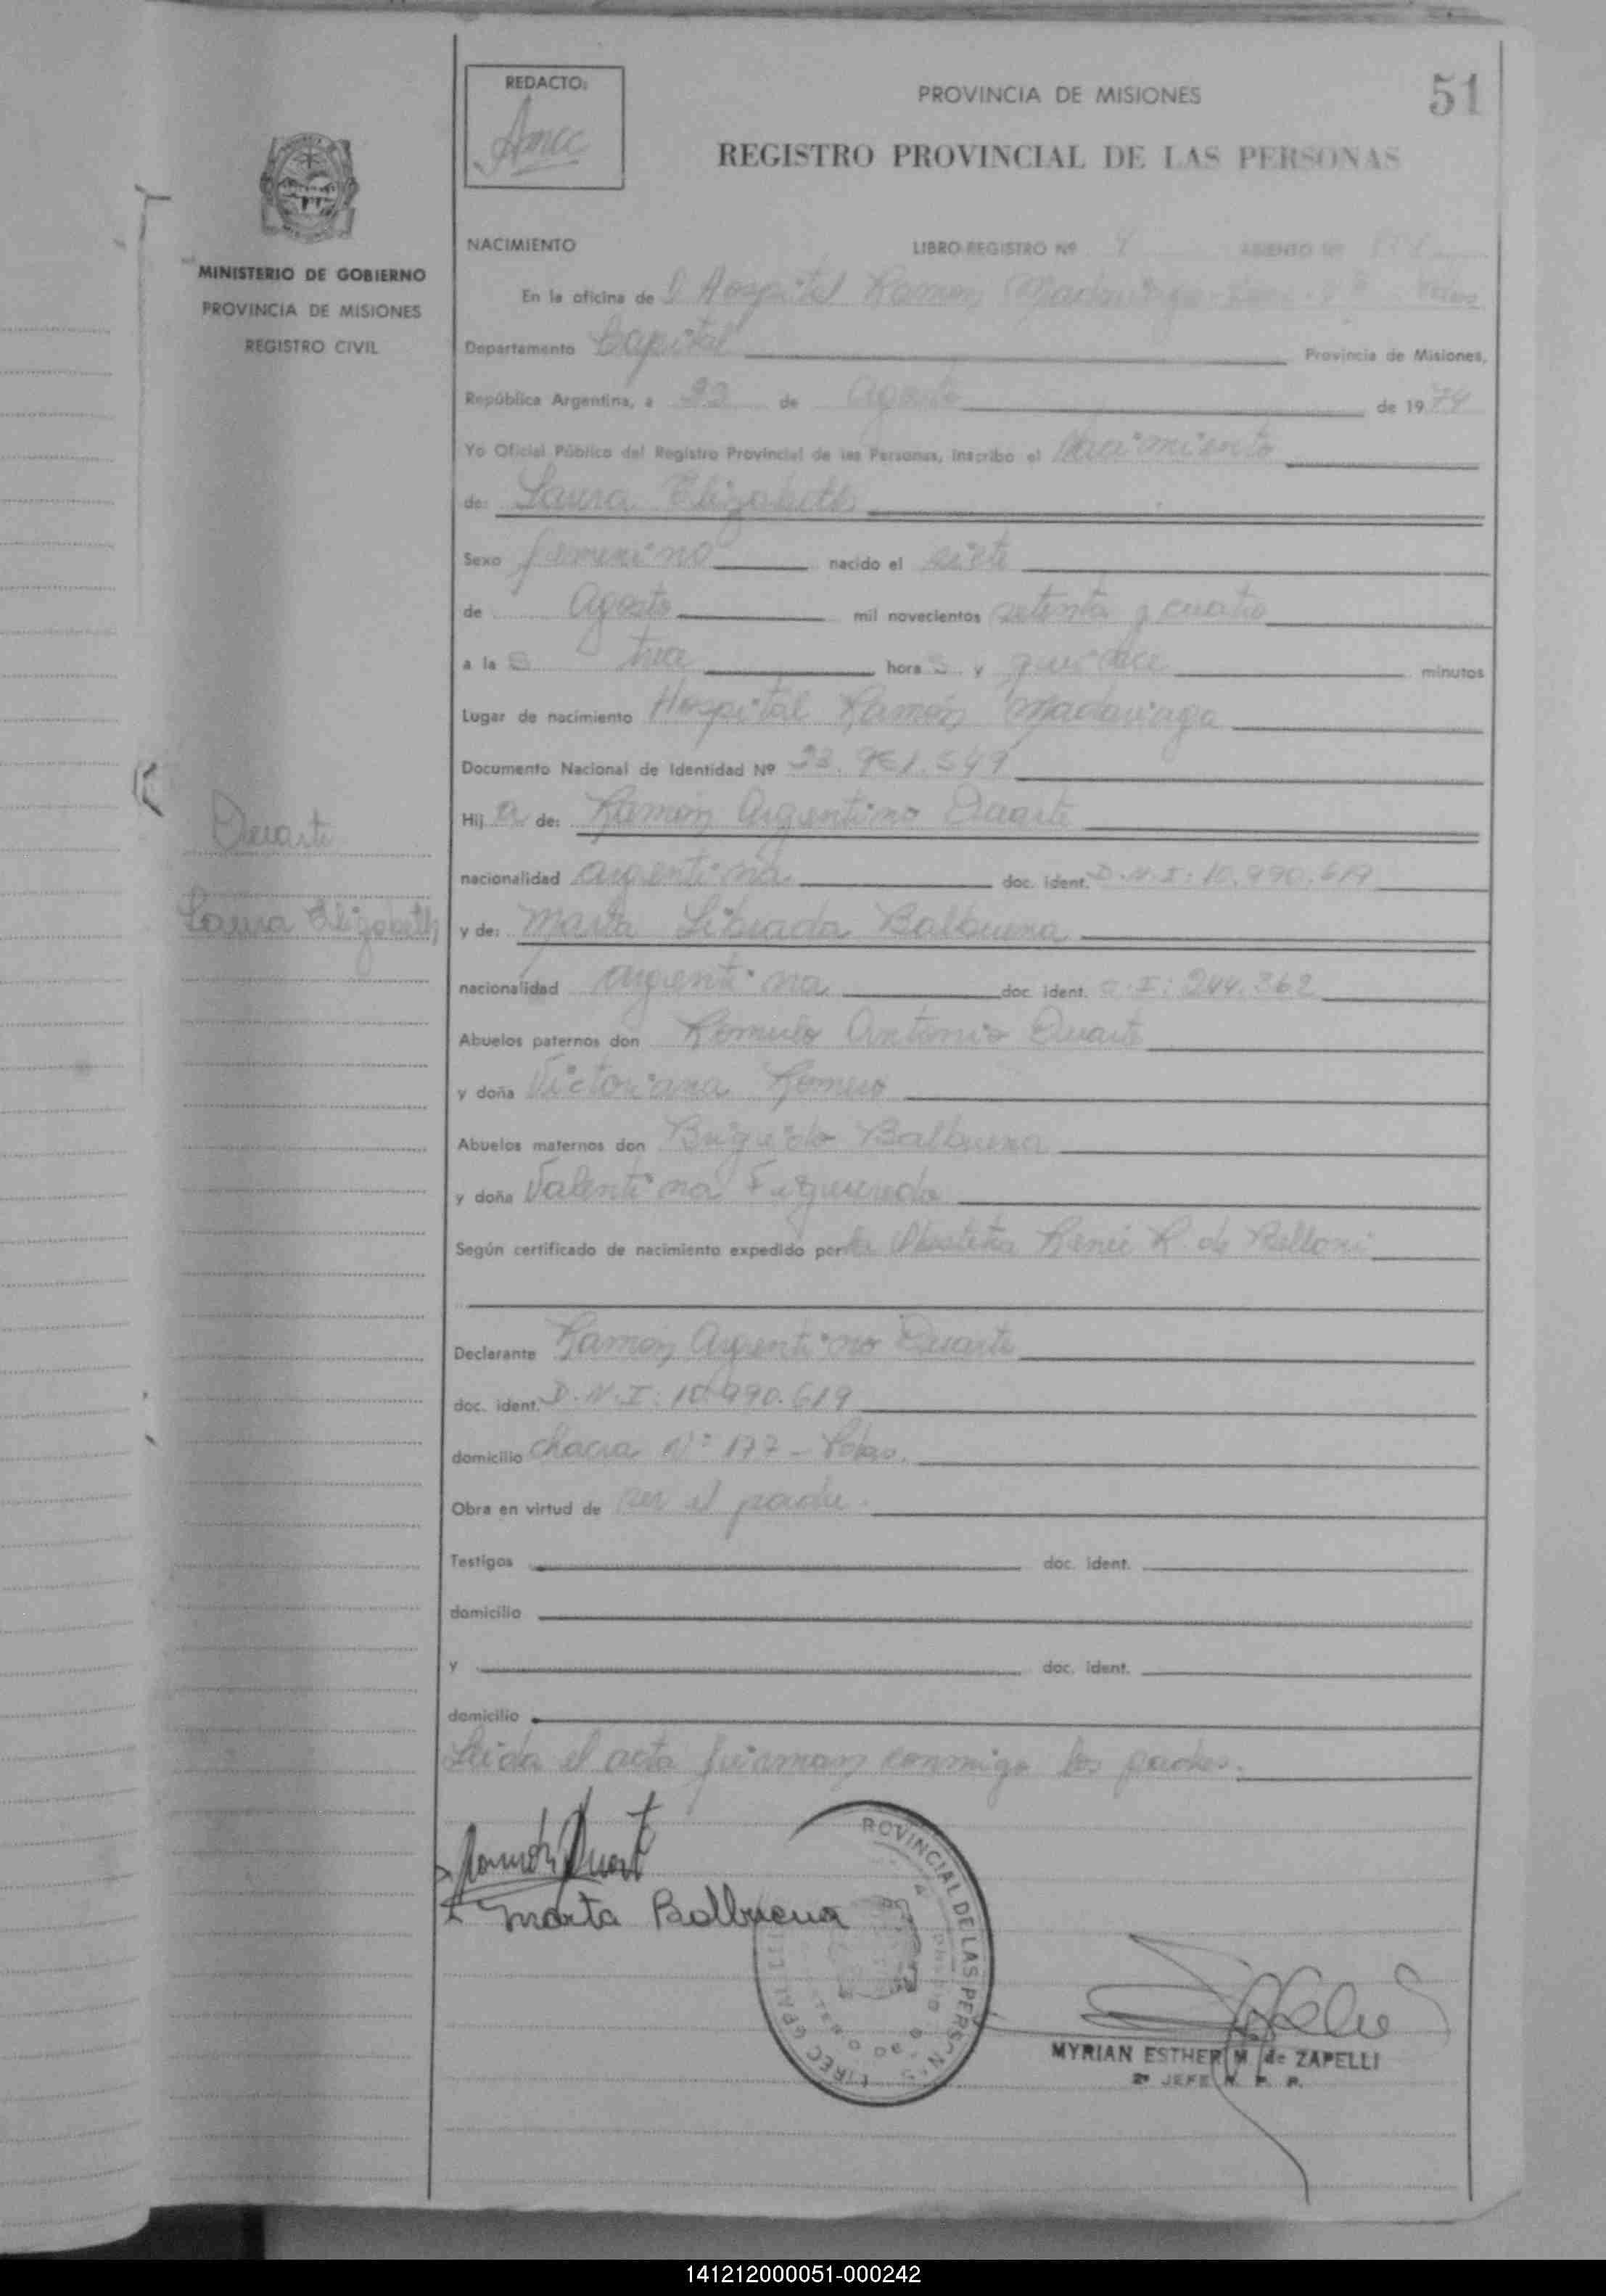 51
REDACTO:
PROVINCIA DE MISIONES
REGISTRO PROVINCIAL DE LAS PERSONAS
MINISTERIO DE GOBIERNO
PROVINCIA DE MISIONES
REGISTRO CIVIL
NACIMIENTO LIBRO REGISTRO Nº ASIENTO Nº
En la oficina de Hospital Ramon Madariaga
Departamento Capital Provincia de Misiones,
República Argentina, a de Agosto de 1974
Yo Oficial Público del Registro Provincial de las Personas, inscribo el Nacimiento
de: Laura Elizabeth
Sexo femenino nacido el siete
de Agosto mil novecientos setenta y cuatro
a la s trece hora s y quince minutos
Lugar de nacimiento Hospital Ramón Madariaga
Documento Nacional de Identidad Nº
Duarte
Laura Elizabeth
Hij a de: Ramón Argentino Duarte
nacionalidad argentina doc. ident. D.N.I: 10.990.619
y de: Marta Librada Balbuena
nacionalidad argentina doc. ident. 244.362
Abuelos paternos don Romulo Antonio Duarte
y doña Victoriana Romero
Abuelos maternos don Brigido Balbuena
y doña Valentina Figueredo
Según certificado de nacimiento expedido por la Obstetra R de Belloni
Declarante Ramon Argentino Duarte
doc. ident. D.N.I: 10.990.619
domicilio chacra Nº 177 -
Obra en virtud de ser el padre.
Testigos doc. ident.
domicilio
y doc. ident.
domicilio
Leida el acta firman conmigo los padres.
Ramón Duart
Marta Balbuena
ROVINCIAL DE LAS PERSON
MYRIAN ESTHER M. de ZAPELLI
2º JEFE R. P. P.
141212000051-000242